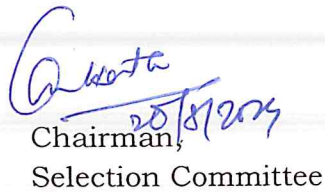 20/8/2024
Chairman,
Selection Committee